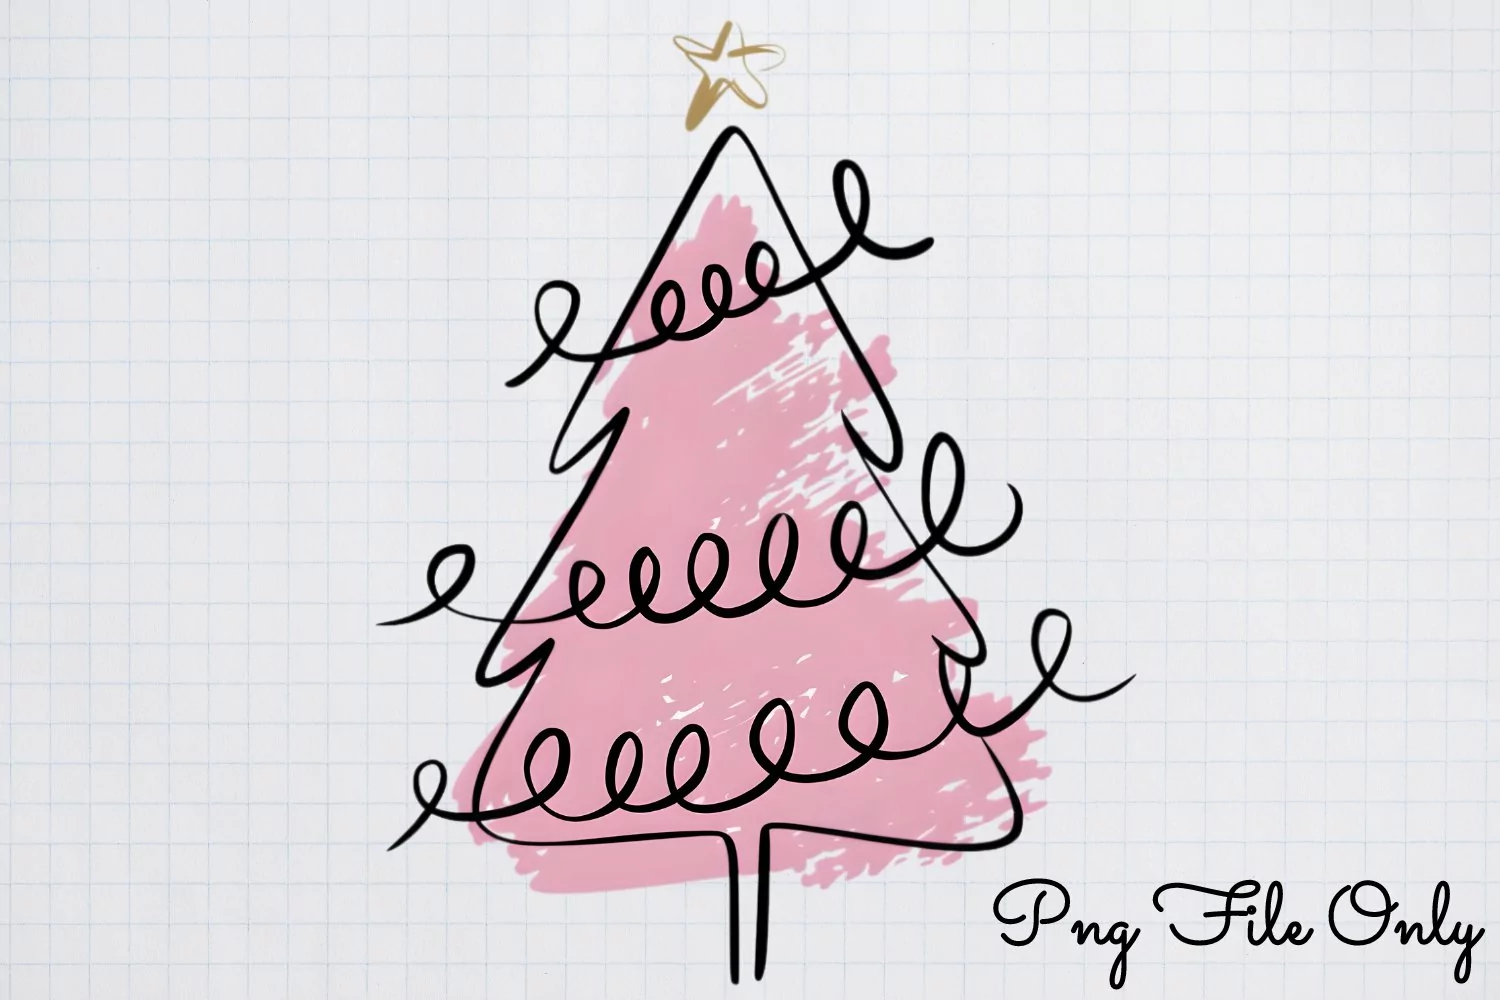 Png File Only